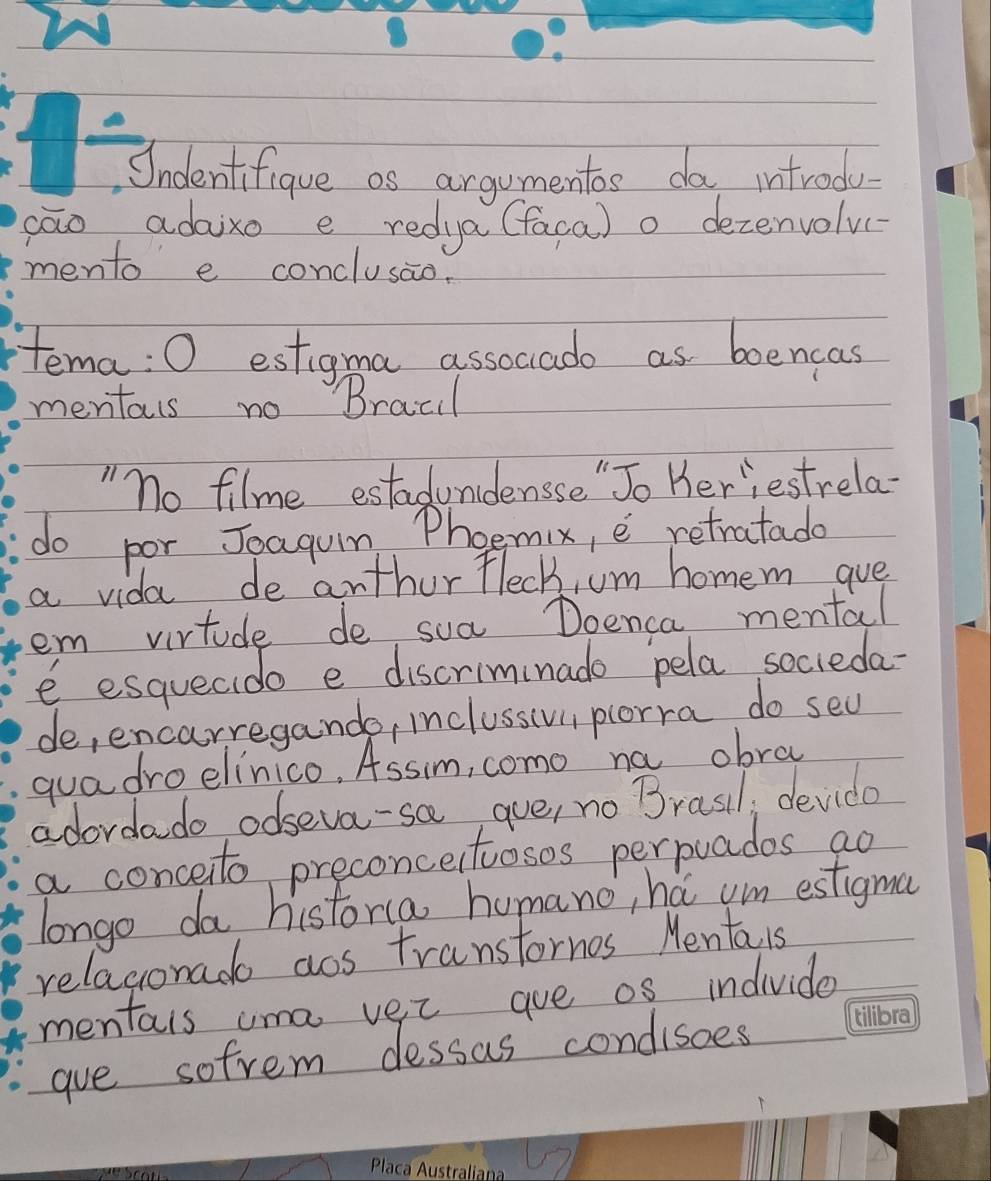 1- Indentifique os argumentos da introdu-
ção adaixo e redija (faça) o dezenvolvi-
mento e conclusão.
tema: O estigma associado as boenças
mentais no Brazil
"no filme estadunidensse "Jo Ker", estrela-
do por Joaquin Phoemix, é retratado
a vida de anthur fleck, um homem que
em virtude de sua Doença mental
é esquecido e discriminado pela socieda-
de, encarregando, inclussivi, piorra do seu
quadro elínico. Assim, como na obra
adordado odseva-sa que, no Brasil, devido
a conceito preconceituosos perpuados ao
longo da historia humano, há um estigma
relacionado aos transtornos Mentais
mentais uma vez que os individo
que sofrem dessas condisoes
tilibra
Placa Australiana